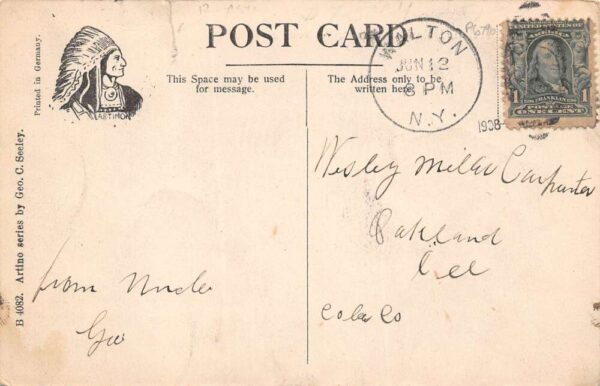 POST CARD
WALTON
JUN 12
8 PM
N.Y.
1908
UNITED STATES OF AMERICA
FRANKLIN
1 ONE CENT 1
This Space may be used
for message.
The Address only to be
written here
Printed in Germany.
B 4082. Artino series by Geo. C. Seeley.
from Uncle
Geo
Wesley Miller Carpenter
Oakland
Cal